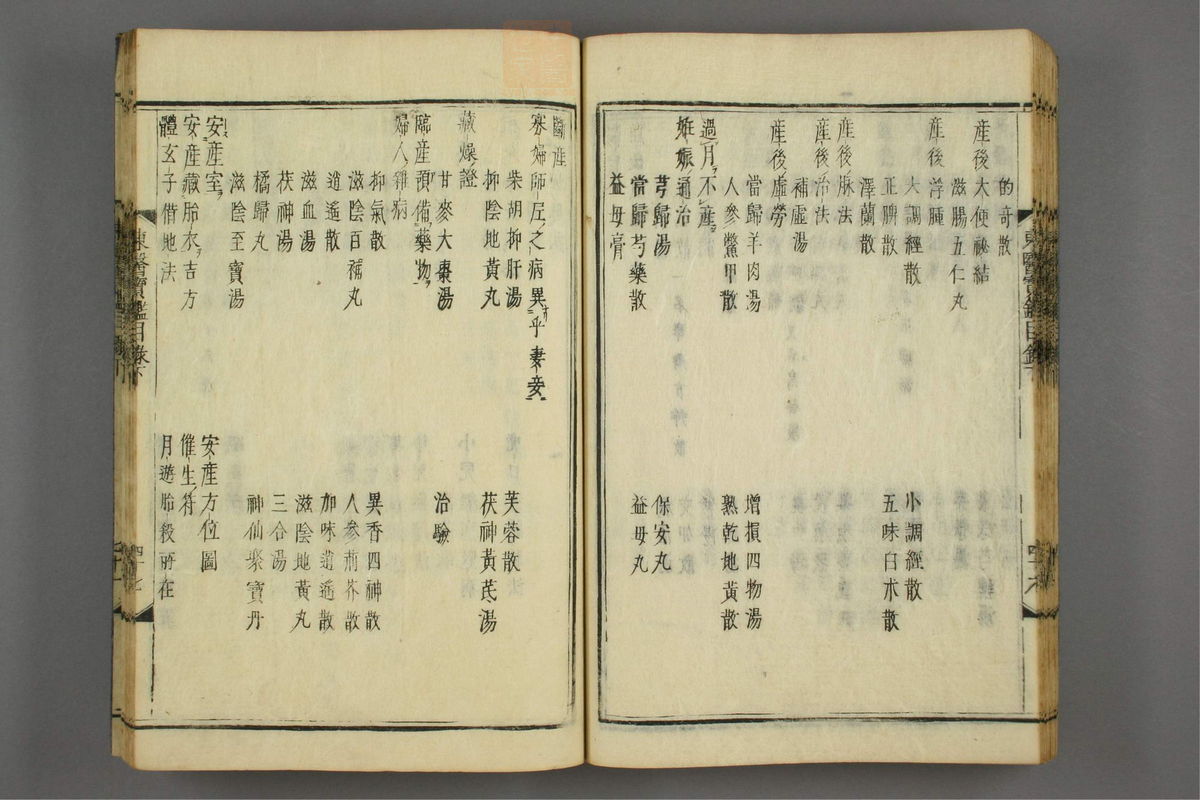 的奇散
産後大便秘結
滋腸五仁丸
産後浮腫
大調經散 小調經散
正脾散 五味白朮散
澤蘭散
産後脉法
産後治法
補虛湯
産後虛勞
當歸羊肉湯 增損四物湯
人參鱉甲散 熟乾地黃散
過月不産
妊娠通治
芎歸湯 保安丸
當歸芍藥散 益母丸
益母膏
斷産
寡婦師尼之病異乎妻妾
柴胡抑肝湯 芙蓉散
抑陰地黃丸 茯神黃芪湯
藏燥證
甘麥大棗湯 治驗
臨産預備藥物
婦人雜病
抑氣散 異香四神散
滋陰百補丸 人參荊芥散
逍遙散 加味逍遙散
滋血湯 滋陰地黃丸
茯神湯 三合湯
橘歸丸 神仙聚寶丹
滋陰至寶湯
安産室 安産方位圖
安産藏胎衣吉方 催生符
體玄子借地法 月遊胎殺所在
東醫寶鑑目錄下